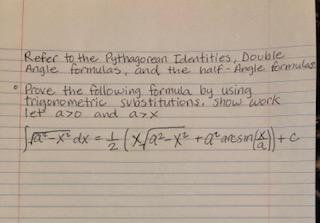 Refer to the Pythagorean Identities, Double
Angle formulas, and the half-Angle formulas
• Prove the following formula by using
trigonometric substitutions, show work
let a>0 and a>x
∫√a²-x² dx = 1/2 (x√a²-x² + a² arcsin(x/a)) + c